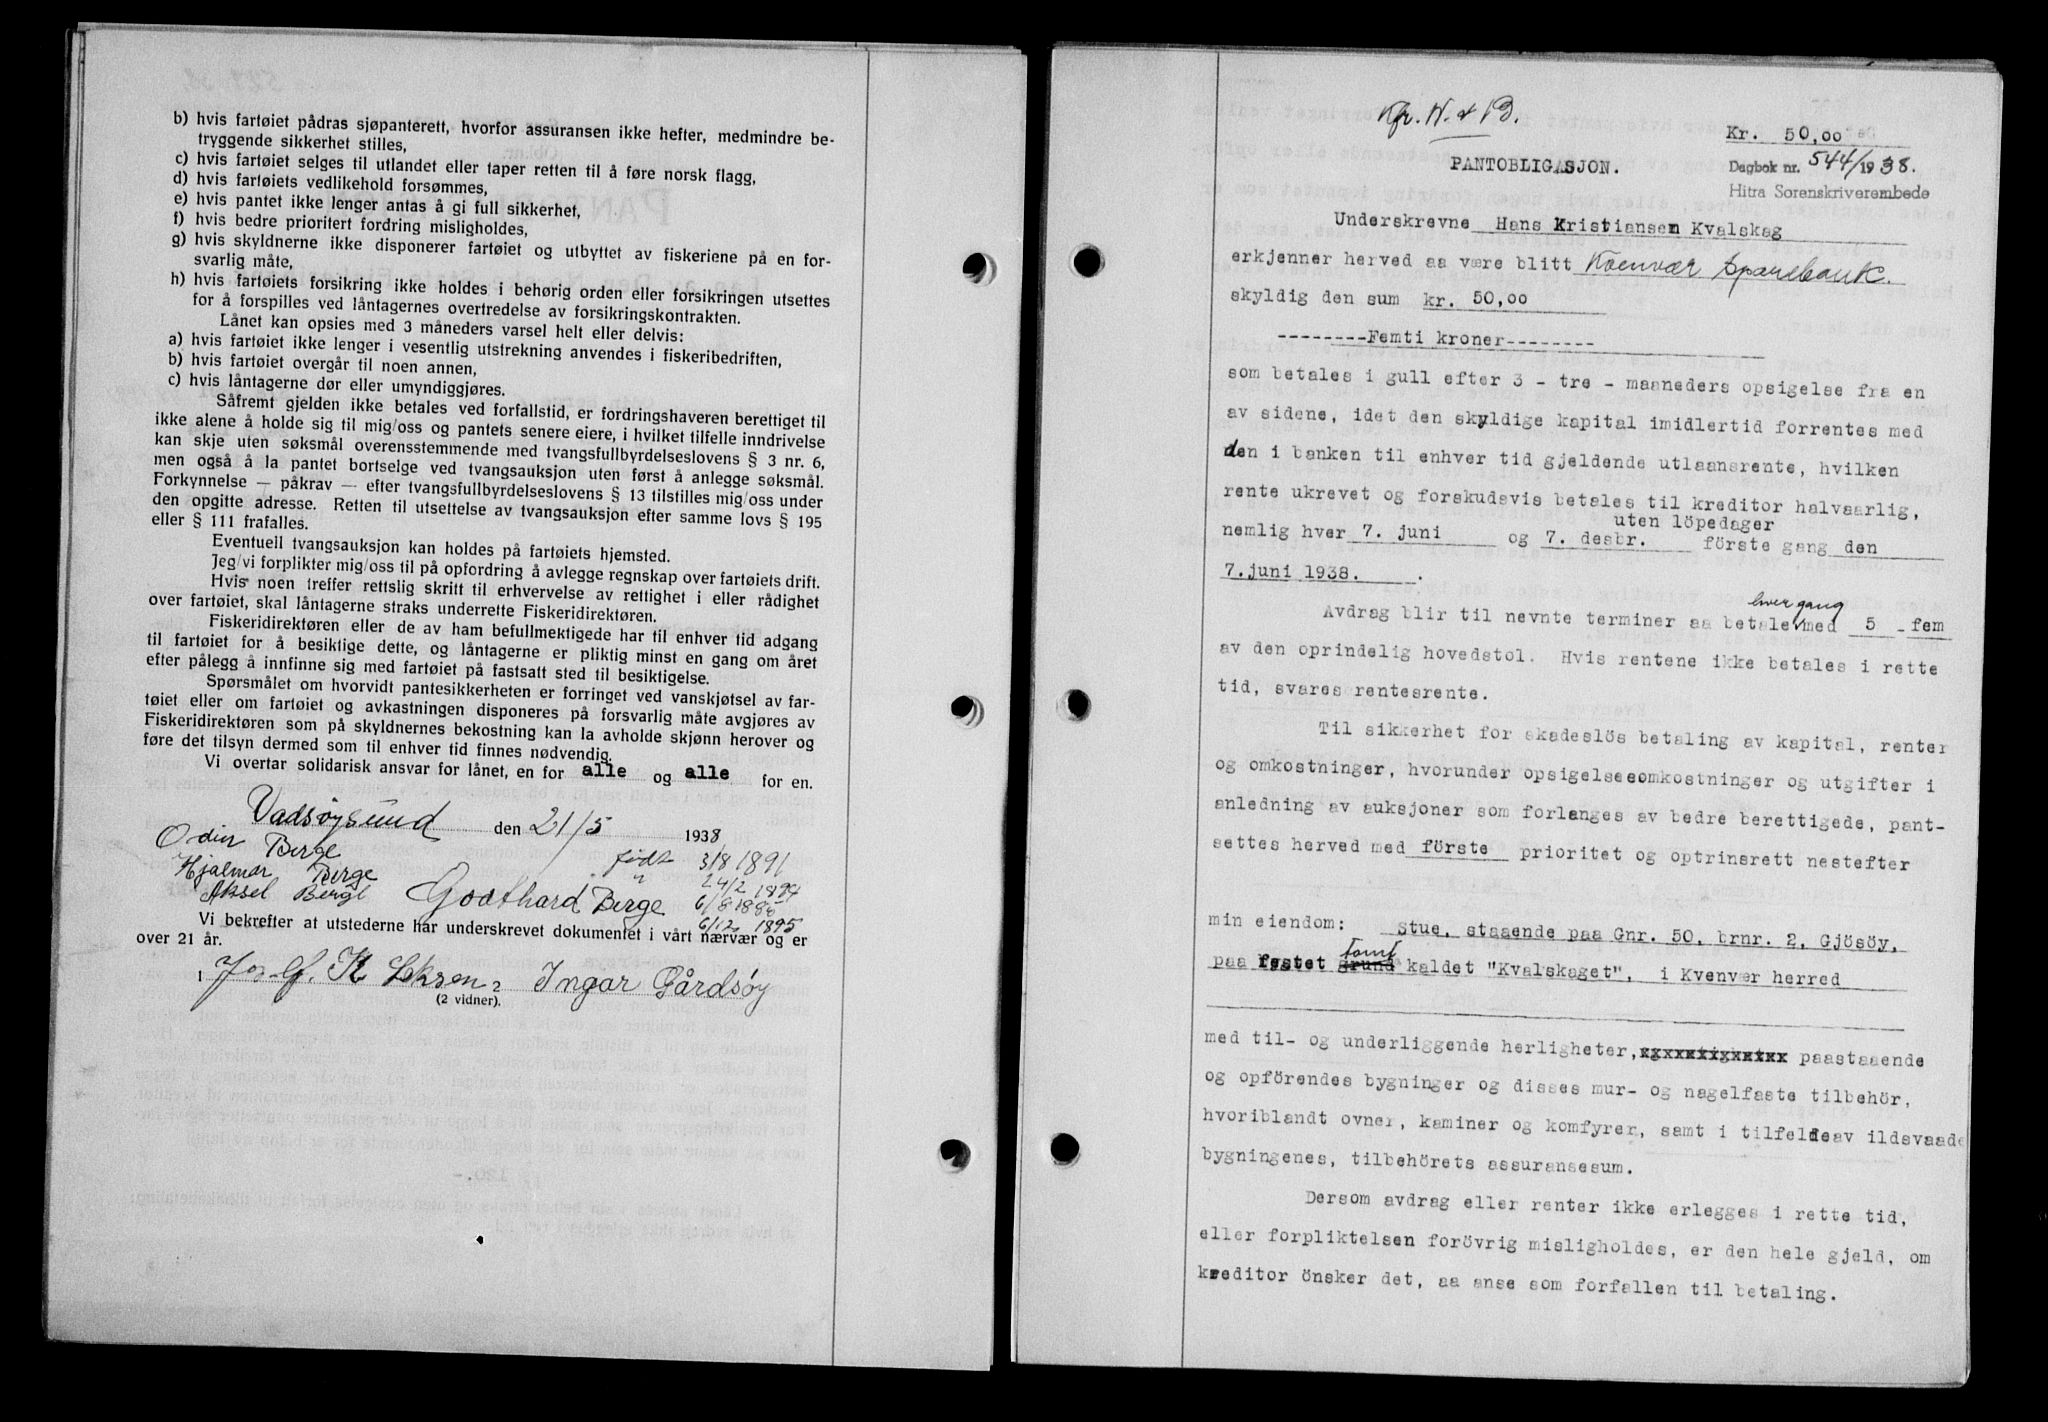 b) hvis fartøiet pådras sjøpanterett, hvorfor assuransen ikke hefter, medmindre be-
tryggende sikkerhet stilles,
c) hvis fartøiet selges til utlandet eller taper retten til å føre norsk flagg,
d) hvis fartøiets vedlikehold forsømmes,
e) hvis pantet ikke lenger antas å gi full sikkerhet,
f) hvis bedre prioritert fordring misligholdes,
g) hvis skyldnerne ikke disponerer fartøiet og utbyttet av fiskeriene på en for-
svarlig måte,
h) hvis fartøiets forsikring ikke holdes i behørig orden eller forsikringen utsettes
for å forspilles ved låntagernes overtredelse av forsikringskontrakten.
Lånet kan opsies med 3 måneders varsel helt eller delvis:
a) hvis fartøiet ikke lenger i vesentlig utstrekning anvendes i fiskeribedriften,
b) hvis fartøiet overgår til noen annen,
c) hvis låntagerne dør eller umyndiggjøres.
Såfremt gjelden ikke betales ved forfallstid, er fordringshaveren berettiget til
ikke alene å holde sig til mig/oss og pantets senere eiere, i hvilket tilfelle inndrivelse
kan skje uten søksmål overensstemmende med tvangsfullbyrdelseslovens § 3 nr. 6,
men også å la pantet bortselge ved tvangsauksjon uten først å anlegge søksmål.
Forkynnelse — påkrav — efter tvangsfullbyrdelseslovens § 13 tilstilles mig/oss under
den opgitte adresse. Retten til utsettelse av tvangsauksjon efter samme lovs § 195
eller § 111 frafalles.
Eventuell tvangsauksjon kan holdes på fartøiets hjemsted.
Jeg/vi forplikter mig/oss til på opfordring å avlegge regnskap over fartøiets drift.
Hvis noen treffer rettslig skritt til erhvervelse av rettighet i eller rådighet
over fartøiet, skal låntagerne straks underrette Fiskeridirektøren.
Fiskeridirektøren eller de av ham befullmektigede har til enhver tid adgang
til fartøiet for å besiktige dette, og låntagerne er pliktig minst en gang om året
efter pålegg å innfinne sig med fartøiet på fastsatt sted til besiktigelse.
Spørsmålet om hvorvidt pantesikkerheten er forringet ved vanskjøtsel av far-
tøiet eller om fartøiet og avkastningen disponeres på forsvarlig måte avgjøres av
Fiskeridirektøren som på skyldnernes bekostning kan la avholde skjønn herover og
føre det tilsyn dermed som til enhver tid finnes nødvendig.
Vi overtar solidarisk ansvar for lånet, en for alle og alle for en.
Vadsøysund den 21/5 1938
Odin Berge født 3/8 1891
Hjalmar Berge " 24/2 1894
Aksel Berge Godthard Berge 6/8 1886
6/12 1895
Vi bekrefter at utstederne har underskrevet dokumentet i vårt nærvær og er
over 21 år.
1 2 Ingar Gårdsøy
(2 vidner).
Kfr. N. & B.
Kr. 50,00
PANTOBLIGASJON.
Dagbok nr. 544/1938.
Hitra Sorenskriverembede
Underskrevne Hans Kristiansen Kvalskag
erkjenner herved aa være blitt Kvenvær Sparebank.
skyldig den sum kr. 50,00
--------Femti kroner--------
som betales i gull efter 3 - tre - maaneders opsigelse fra en
av sidene, idet den skyldige kapital imidlertid forrentes med
den i banken til enhver tid gjeldende utlaansrente, hvilken
rente ukrevet og forskudsvis betales til kreditor halvaarlig,
uten löpedager
nemlig hver 7. juni og 7. desbr. förste gang den
7.juni 1938. .
hver gang
Avdrag blir til nevnte terminer aa betale med 5 - fem
av den oprindelig hovedstol. Hvis rentene ikke betales i rette
tid, svares rentesrente.
Til sikkerhet for skadeslös betaling av kapital, renter
og omkostninger, hvorunder opsigelsesomkostninger og utgifter i
anledning av auksjoner som forlanges av bedre berettigede, pant-
settes herved med förste prioritet og optrinsrett nestefter
min eiendom: stue, staaende paa Gnr. 50, brnr. 2, Gjösöy,
tomt
paa festet grund kaldet "Kvalskaget", i Kvenvær herred
med til- og underliggende herligheter, xxxxxxxxxxxxx paastaaende
og opförendes bygninger og disses mur- og nagelfaste tilbehör,
hvoriblandt ovner, kaminer og komfyrer, samt i tilfelde av ildsvaade
bygningenes, tilbehörets assuransesum.
Dersom avdrag eller renter ikke erlegges i rette tid,
eller forpliktelsen forövrig misligholdes, er den hele gjeld, om
kreditor önsker det, aa anse som forfallen til betaling.